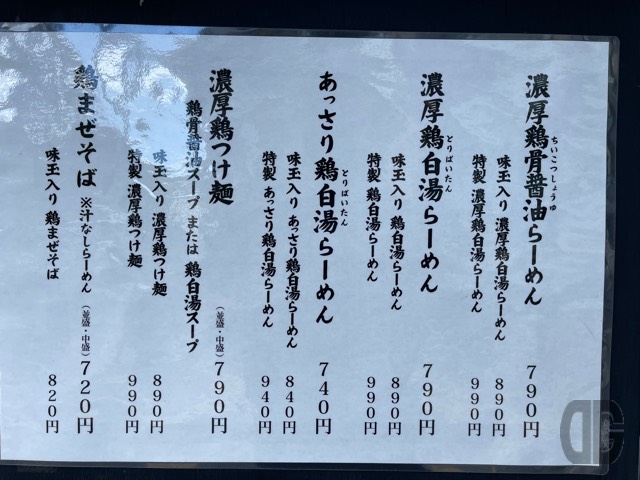 濃厚鶏骨醤油らーめん 790円
ちいこつしょうゆ
味玉入り 濃厚鶏白湯らーめん 890円
特製 濃厚鶏白湯らーめん 990円
濃厚鶏白湯らーめん 790円
とりぱいたん
味玉入り 鶏白湯らーめん 890円
特製 鶏白湯らーめん 990円
あっさり鶏白湯らーめん 740円
とりぱいたん
味玉入り あっさり鶏白湯らーめん 840円
特製 あっさり鶏白湯らーめん 940円
濃厚鶏つけ麺 (並盛・中盛) 790円
鶏骨醤油スープ または 鶏白湯スープ
味玉入り 濃厚鶏つけ麺 890円
特製 濃厚鶏つけ麺 990円
鶏まぜそば ※汁なしらーめん (並盛・中盛) 720円
味玉入り 鶏まぜそば 820円